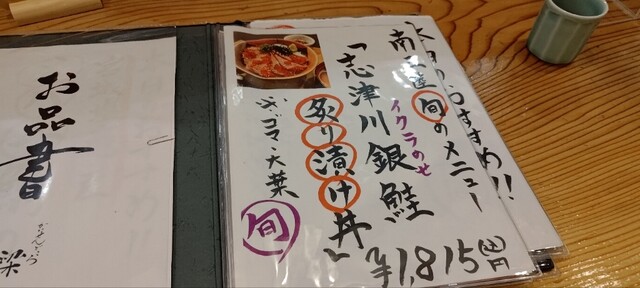 南三陸旬のメニュー
イクラのせ
「志津川銀鮭
炙り漬け丼」
ゴマ・大葉
旬
¥1,815円
おすすめ!!
お品書